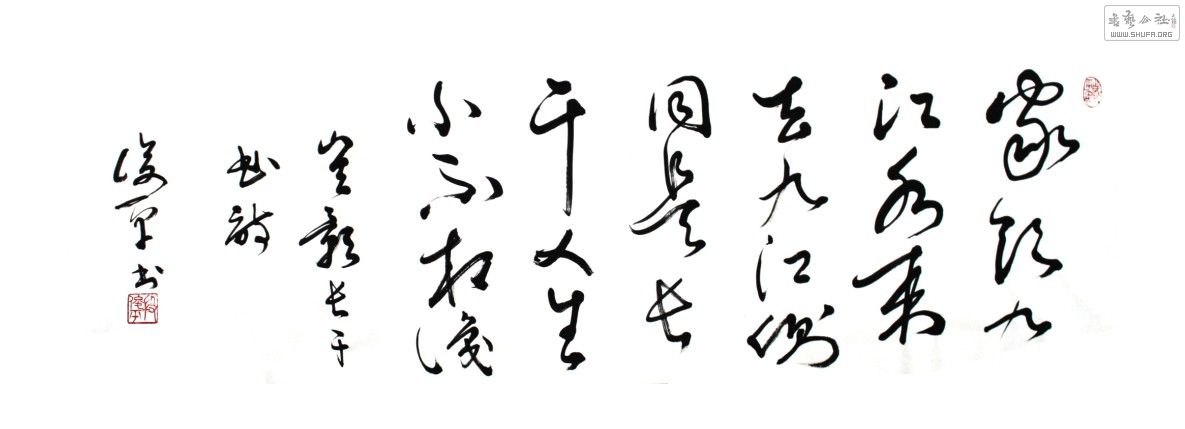 家临九
江水来
去九江侧
同是长
干人生
小不相识
崔颢长干
曲诗
俊军书
书艺公社
WWW.SHUFA.ORG